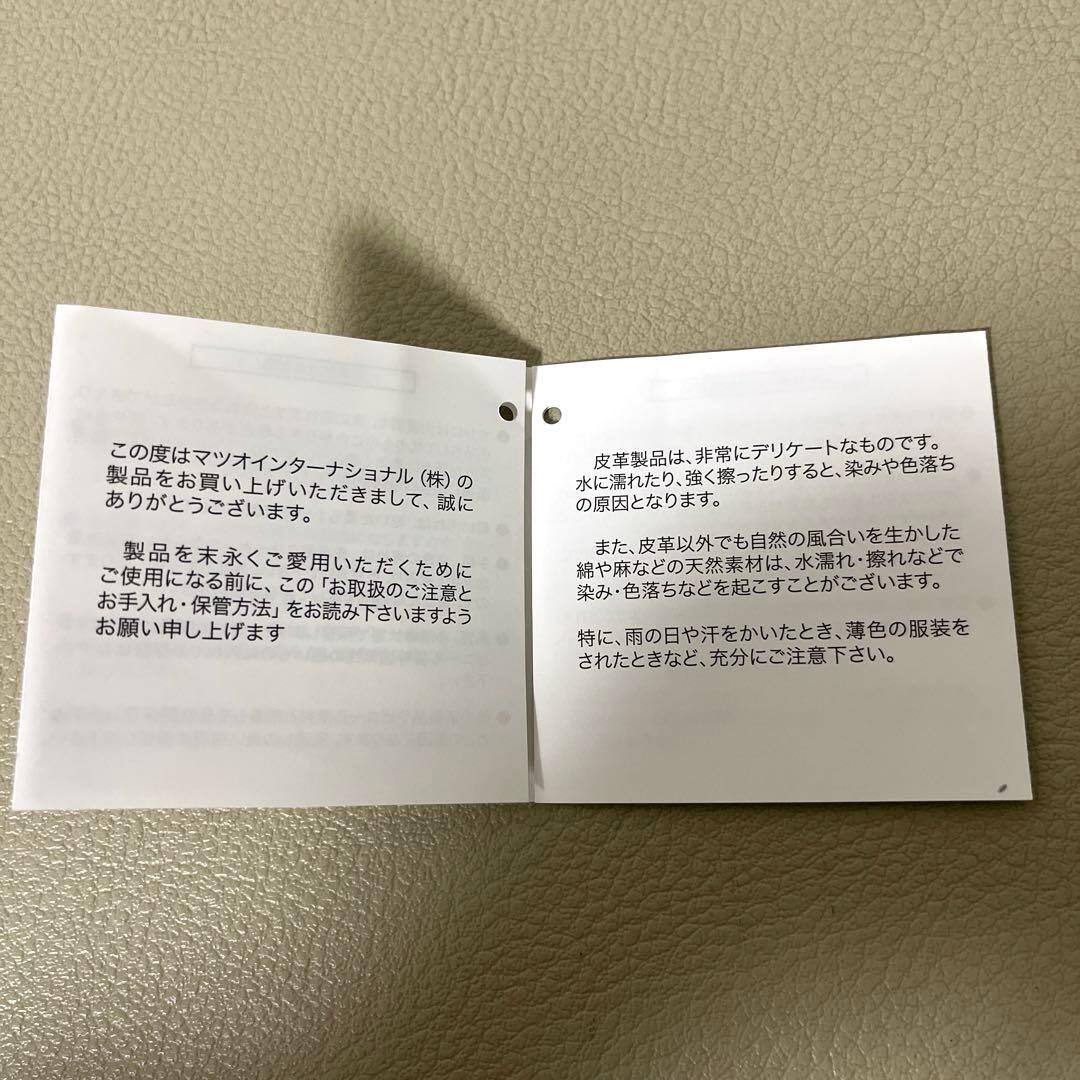 この度はマツオインターナショナル(株)の
製品をお買い上げいただきまして、誠に
ありがとうございます。
製品を末永くご愛用いただくために
ご使用になる前に、この「お取扱のご注意と
お手入れ・保管方法」をお読み下さいますよう
お願い申し上げます
皮革製品は、非常にデリケートなものです。
水に濡れたり、強く擦ったりすると、染みや色落ち
の原因となります。
また、皮革以外でも自然の風合いを生かした
綿や麻などの天然素材は、水濡れ・擦れなどで
染み・色落ちなどを起こすことがございます。
特に、雨の日や汗をかいたとき、薄色の服装を
されたときなど、充分にご注意下さい。